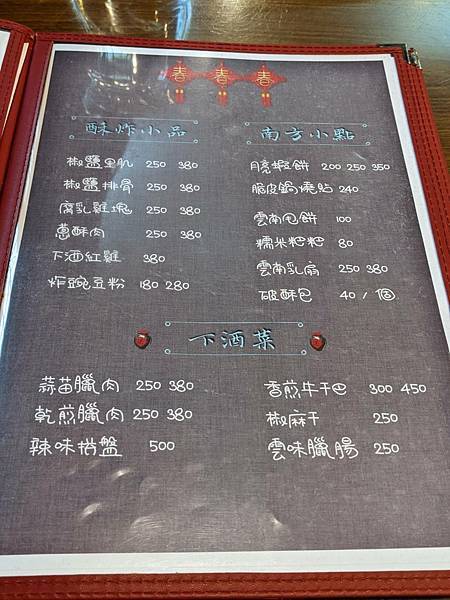 春 春 春
酥炸小品
椒鹽里肌 250 380
椒鹽排骨 250 380
腐乳雞塊 250 380
蔥酥肉 250 380
下酒紅雞 380
炸豌豆粉 180 280
南方小點
月亮蝦餅 200 250 350
脆皮鍋燒貼 240
雲南甩餅 100
糯米粑粑 80
雲南乳扇 250 380
破酥包 40 / 個
下酒菜
蒜苗臘肉 250 380
乾煎臘肉 250 380
辣味拼盤 500
香煎牛干巴 300 450
椒麻干 250
雲味臘腸 250